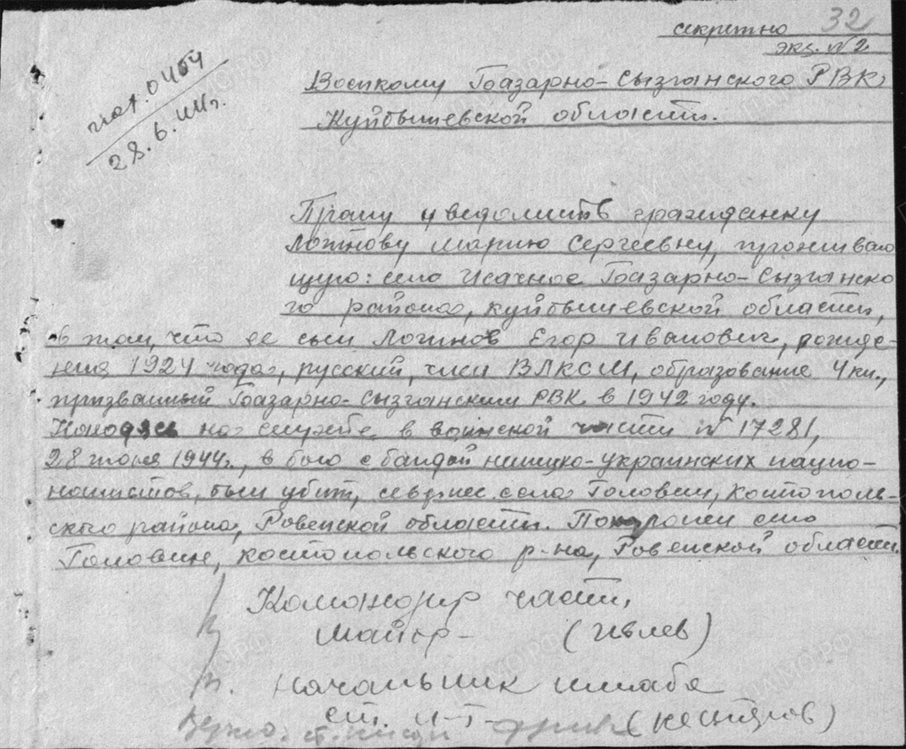 32
секретно
экз. №2
исх. 0454
28.6.44г.
Военкому Базарно-Сызганского РВК
Куйбышевской области.
Прошу уведомить гражданку
Логинову Марию Сергеевну, проживаю
щую: село Исачное Базарно-Сызганско
го района, Куйбышевской области,
в том, что ее сын Логинов Егор Иванович, рожде-
ния 1924 года, русский, член ВЛКСМ, образование 4кл.,
призванный Базарно-Сызганским РВК в 1942 году.
Находясь на службе в воинской части № 17281,
28 июня 1944г., в бою с бандой немецко-украинских нацио-
налистов, был убит, сев. вост. села Головин, Костополь-
ского района, Ровенской области. Похоронен село
Головин, Костопольского р-на, Ровенской области.
Командир части
майор - (Ивлев)
п. начальник штаба
ст. л-т -
Верно: